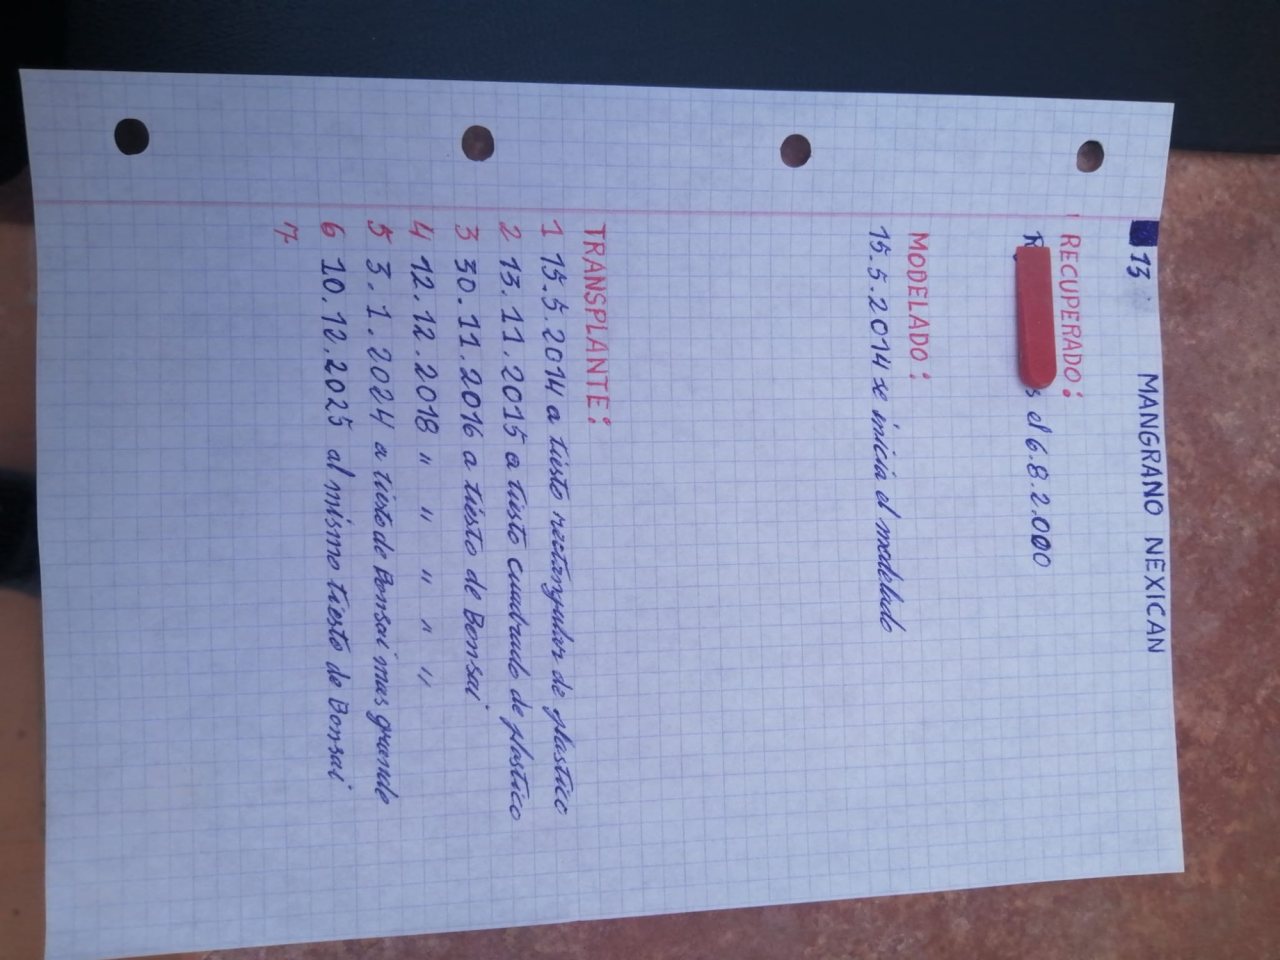 13 MANGRANO NEXICAN
RECUPERADO:
s el 6.8.2.000
MODELADO:
15.5.2014 se inicia el modelado
TRANSPLANTE:
1 15.5.2014 a tiesto rectangular de plastico
2 13.11.2015 a tiesto cuadrado de plastico
3 30.11.2016 a tiesto de Bonsai
4 12.12.2018 " " " " "
5 3.1.2024 a tiesto de Bonsai mas grande
6 10.12.2025 al mismo tiesto de Bonsai
7